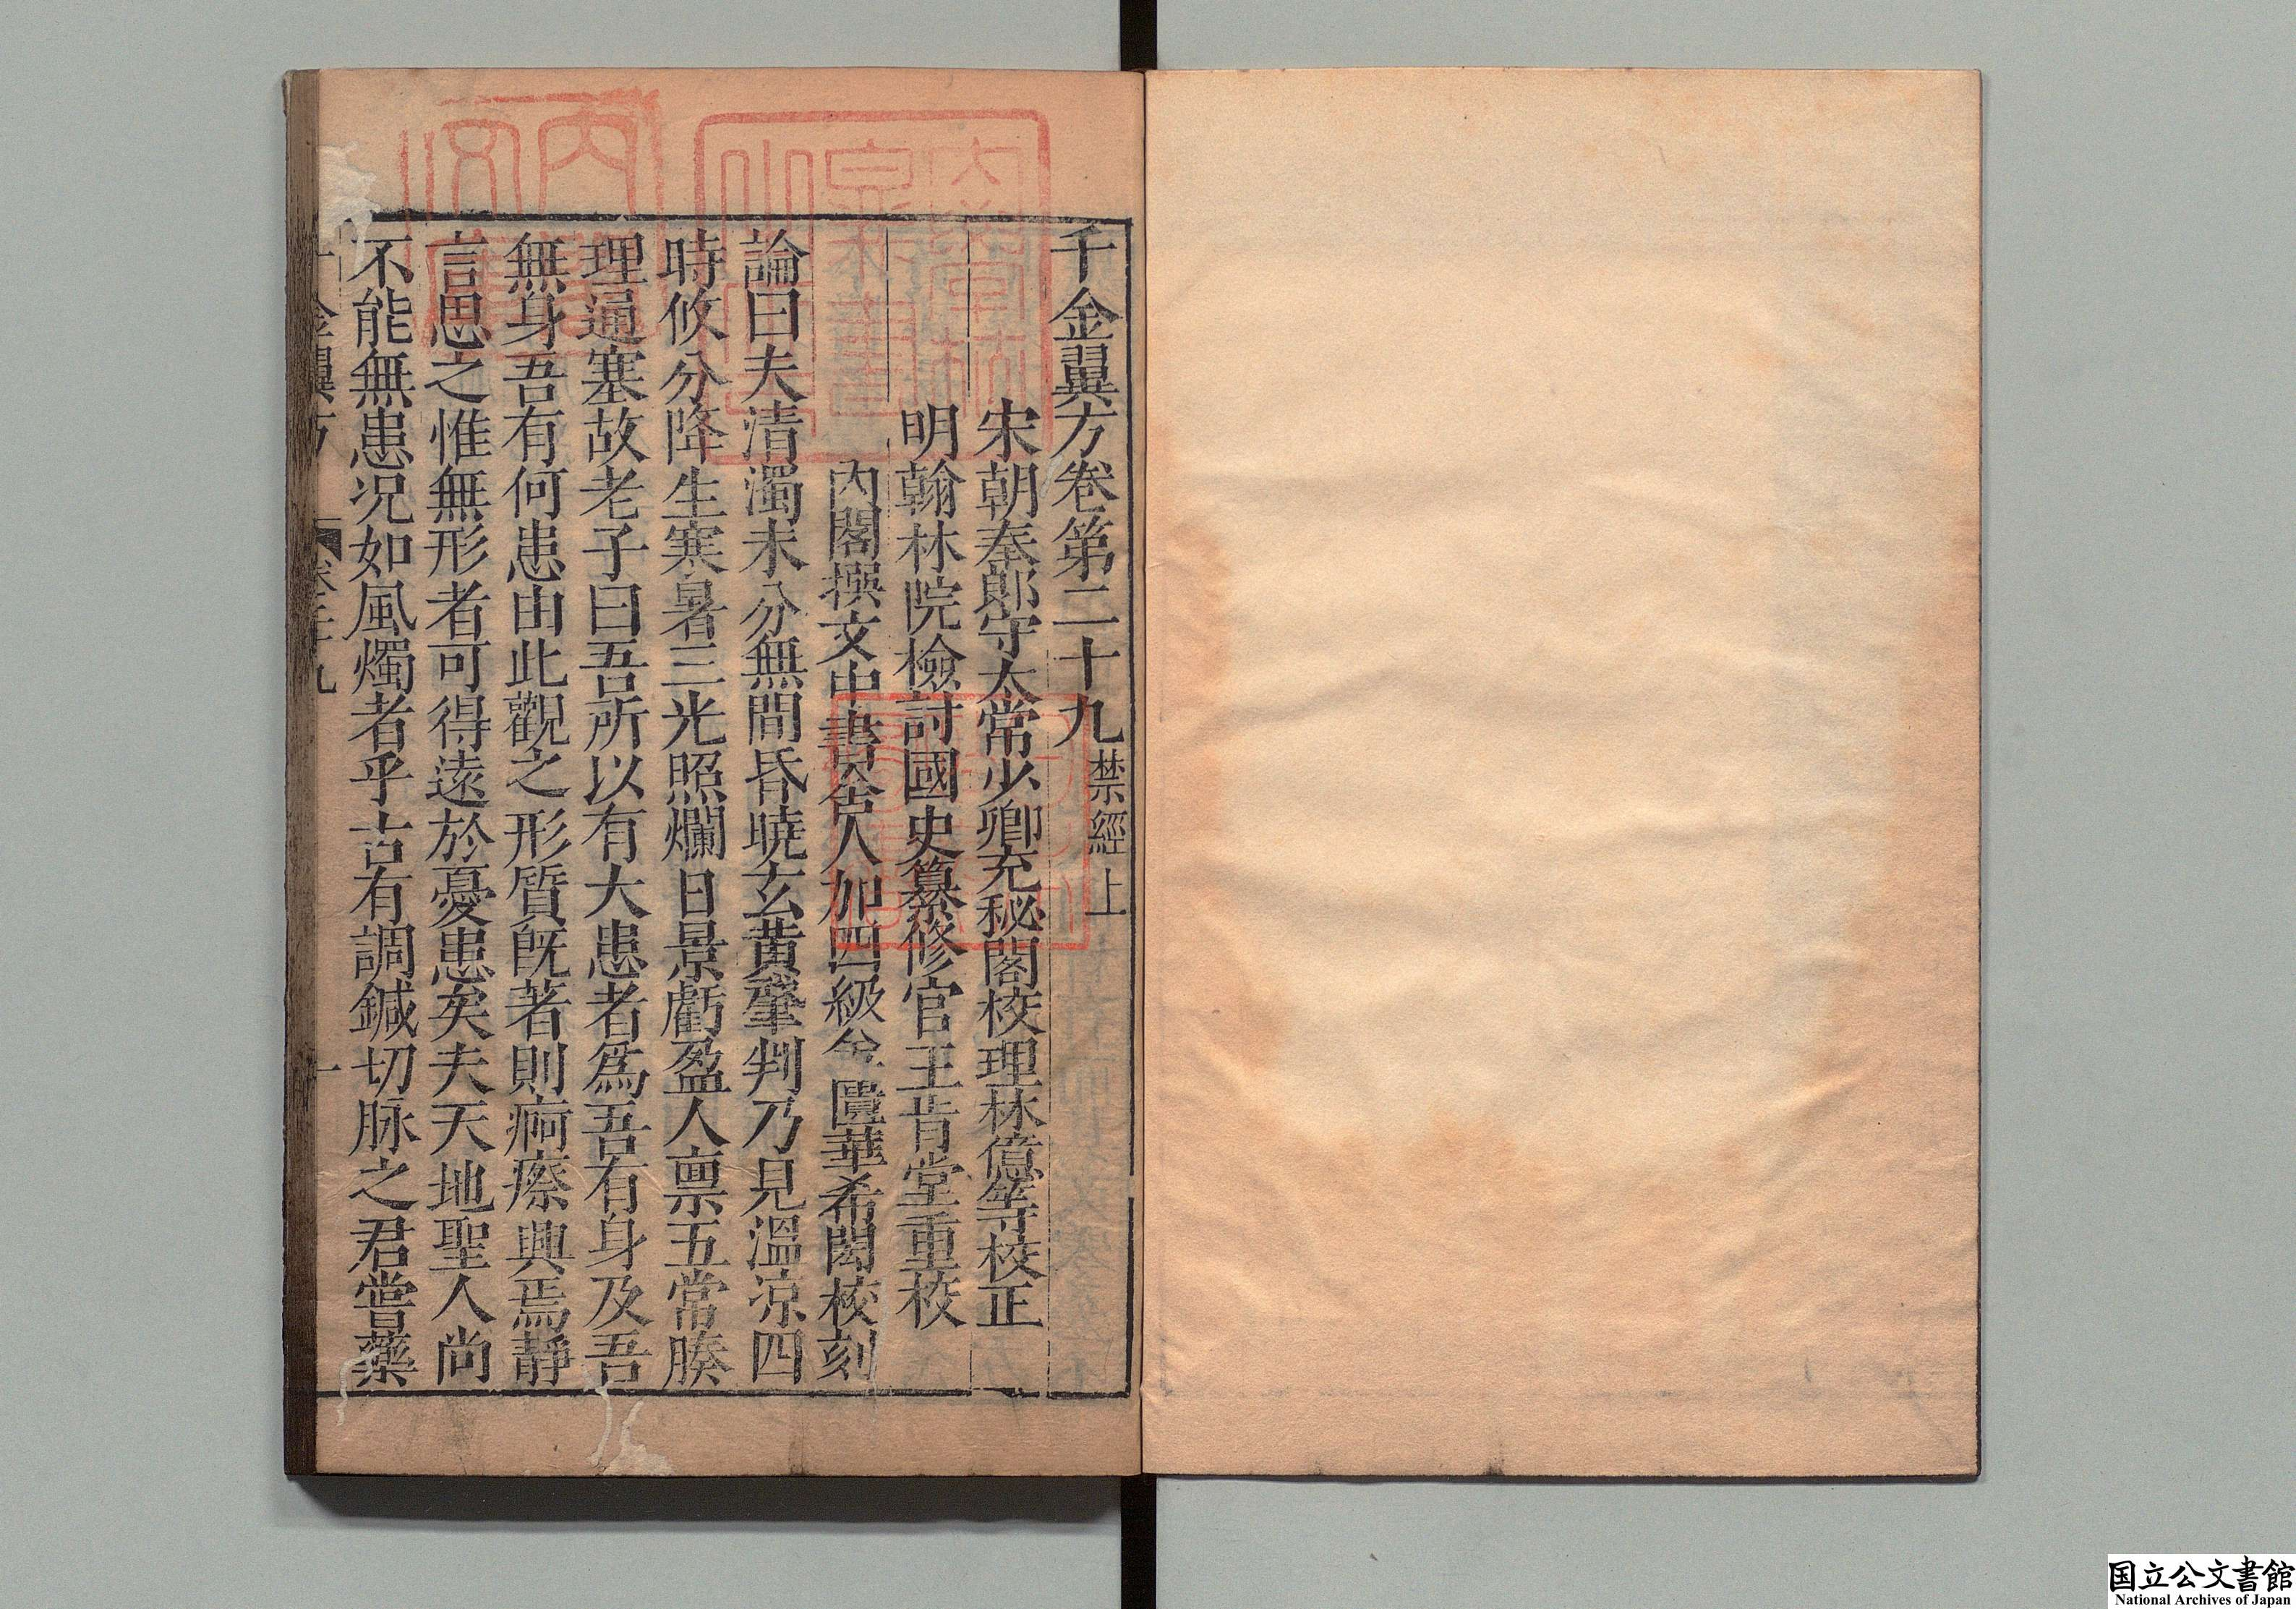 千金翼方卷第二十九 禁經上
宋朝奉郎守太常少卿充秘閣校理林億等校正
明翰林院檢討國史纂修官王肯堂重校
內閣撰文中書舍人加四級金匱華希閎校刻
論曰夫清濁未分無間昏曉玄黃肇判乃見溫凉四
時攸分降生寒暑三光照爛日景虧盈人禀五常腠
理通塞故老子曰吾所以有大患者爲吾有身及吾
無身吾有何患由此觀之形質旣著則痾瘵興焉靜
言思之惟無形者可得遠於憂患矣夫天地聖人尚
不能無患况如風燭者乎古有調鍼切脉之君嘗藥
千金翼方 卷二十九 一
国立公文書館
National Archives of Japan